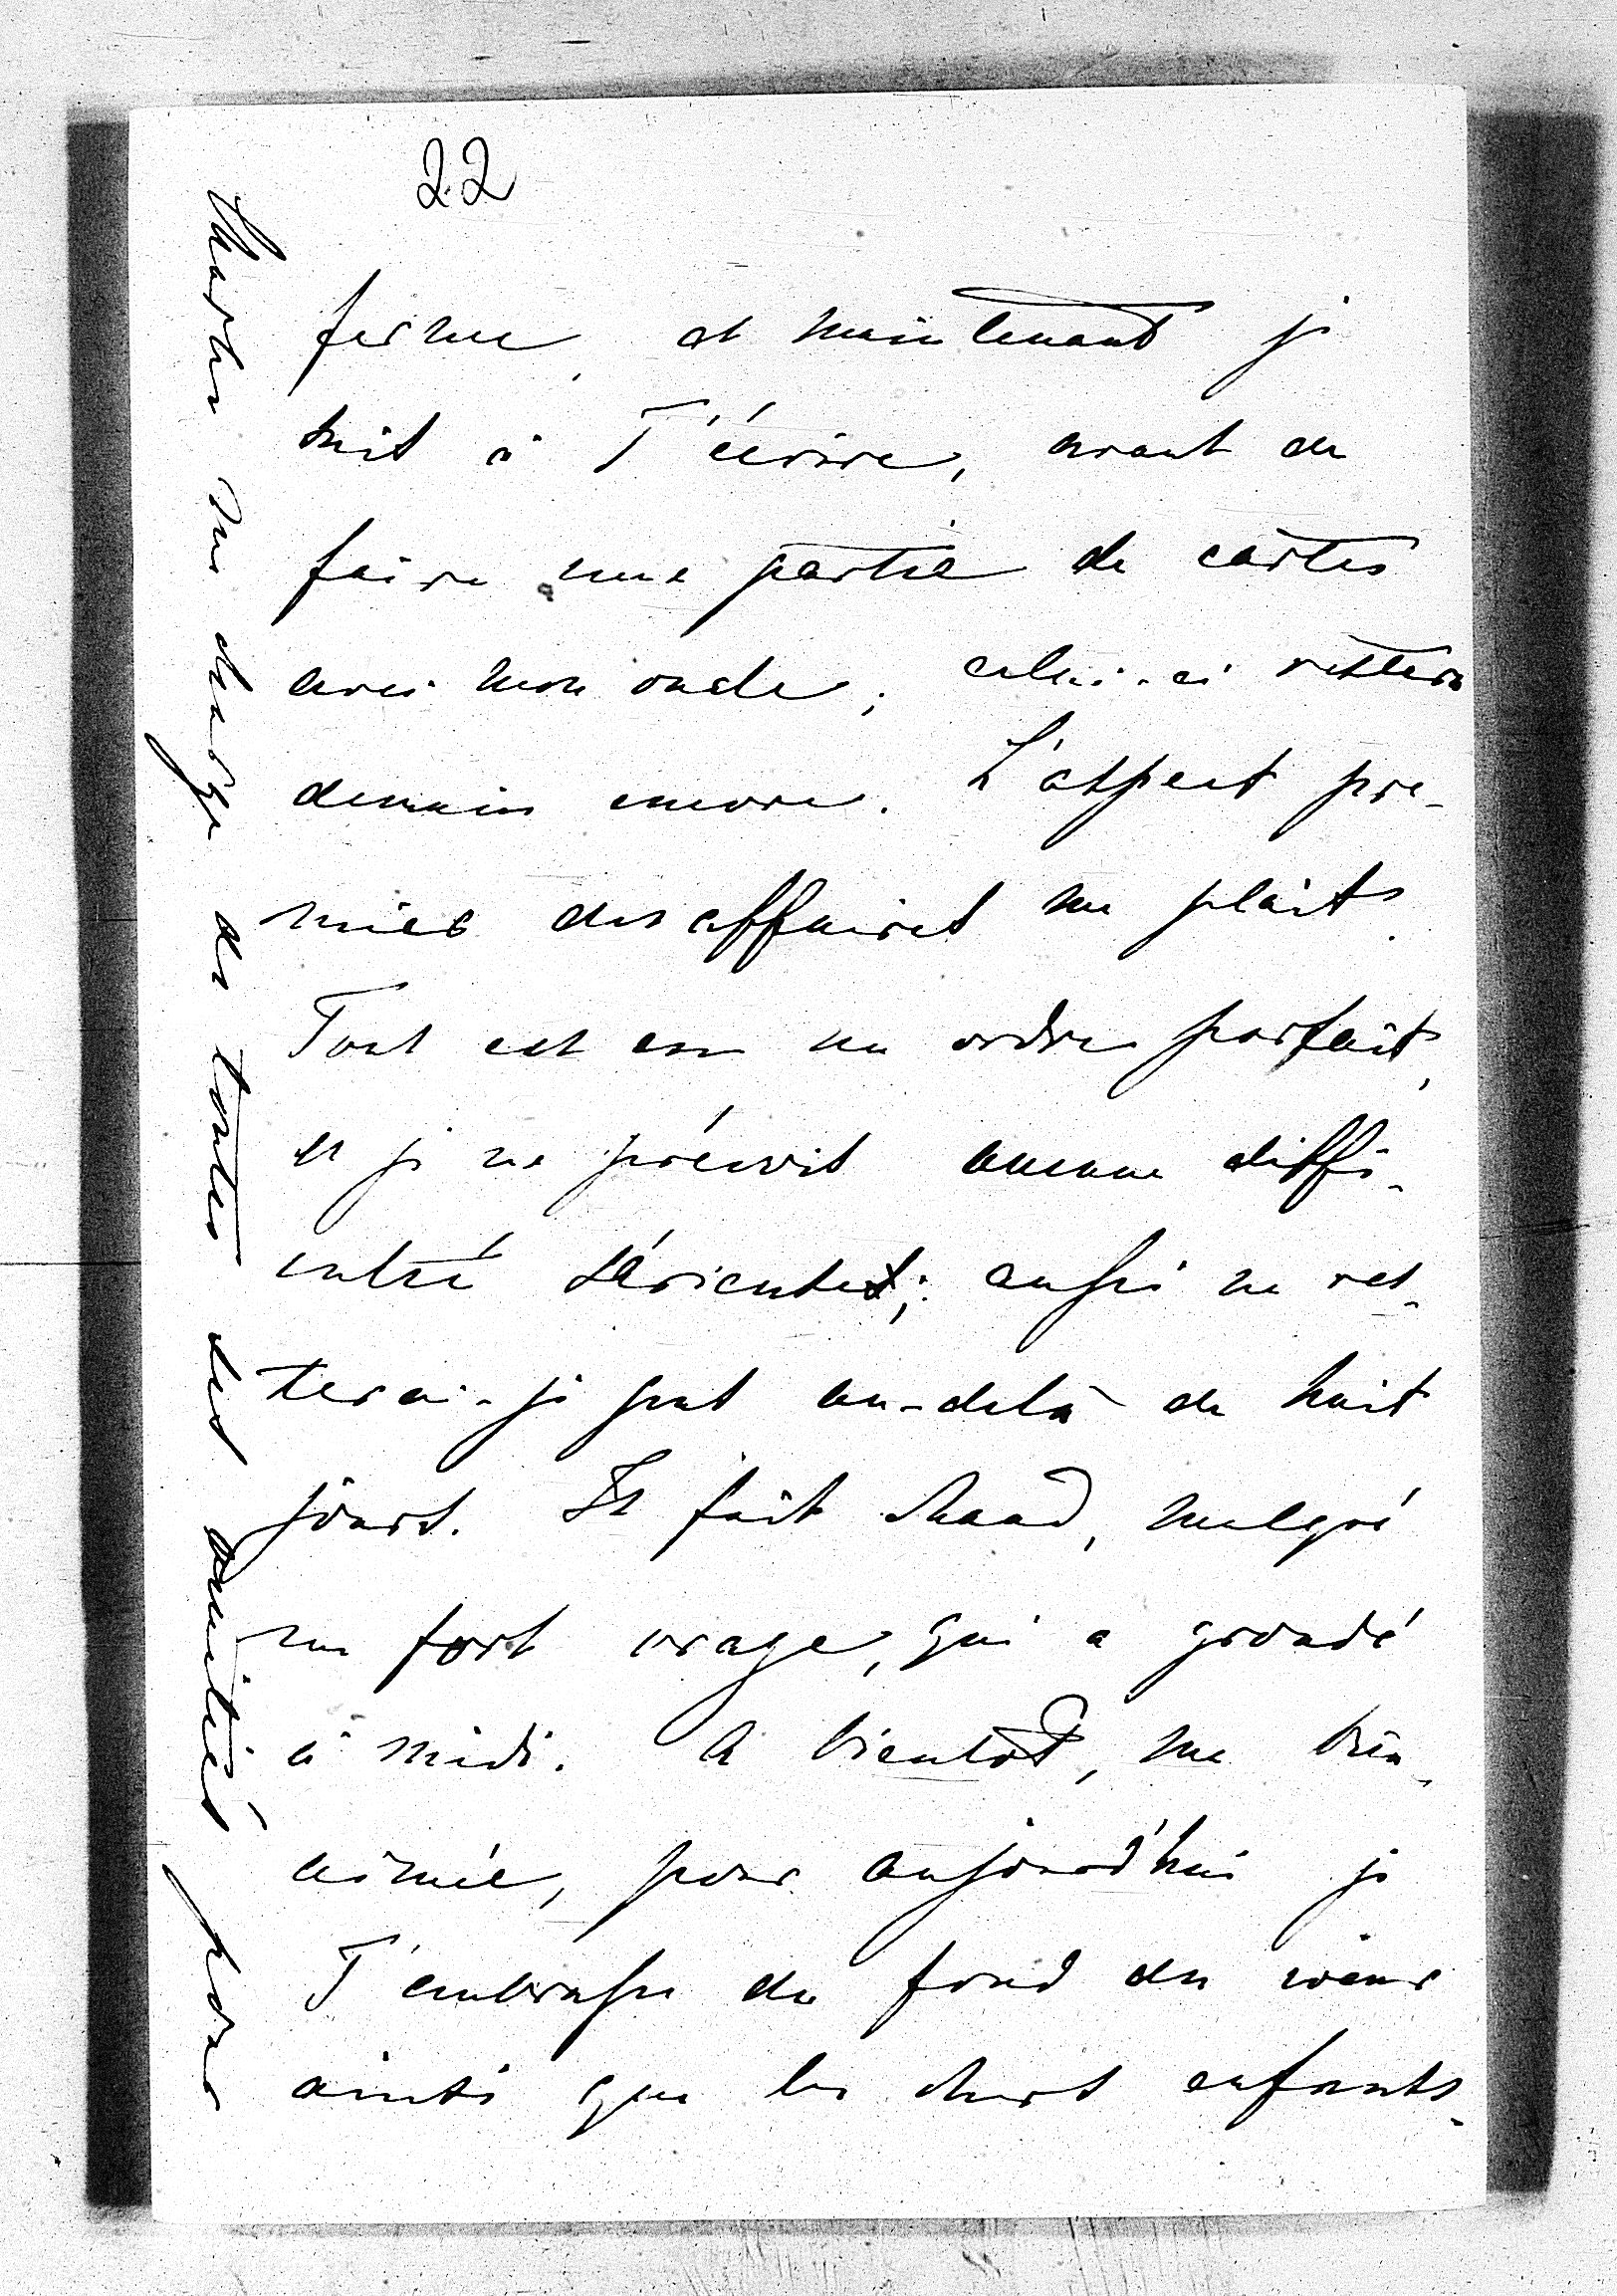 22
ferme, et maintenant je
suis à T'écrire, avant de
faire une partie de cartes
avec mon oncle; celui-ci restera
demain encore. L'aspect pre-
mier des affaires me plaît.
Tout est en un ordre parfait,
et je ne prévois aucune diffi-
culté sérieuse; aussi ne res-
terai-je pas au-delà de huit
jours. Il fait chaud, malgré
un fort orage, qui a grondé
à midi. A bientôt, ma bien-
aimée, pour aujourd'hui je
T'embrasse du fond du cœur
ainsi que les chers enfants.
Marthe me charge de toutes ses amitiés pour